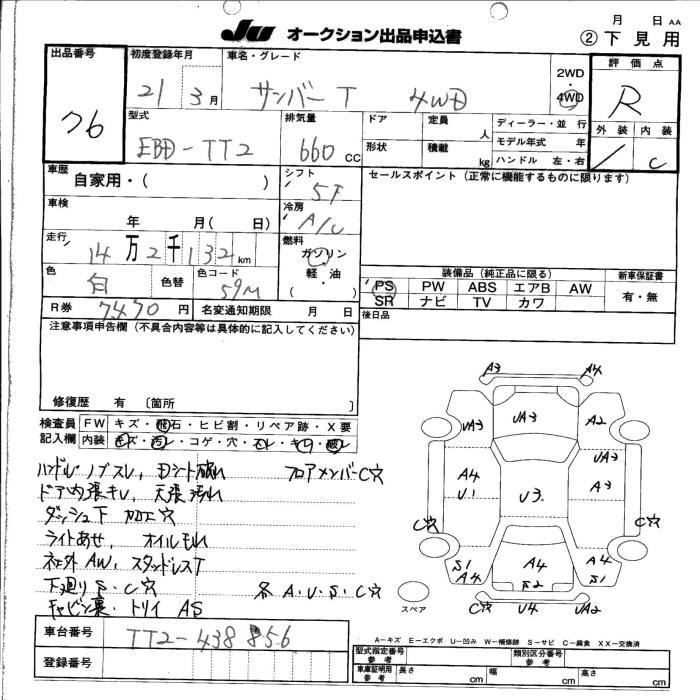 月 日 AA
JU オークション出品申込書
② 下見用
出品番号
76
初度登録年月
21 3月
車名・グレード
サンバーT 4WD
2WD
・
4WD
評価点
R
型式
EBD-TT2
排気量
660 cc
ドア
形状
定員 人
積載 kg
ディーラー・並行
モデル年式 年
ハンドル 左・右
外装 内装
C
車歴
自家用・( )
シフト
5F
セールスポイント(正常に機能するものに限ります)
車検
年 月( 日)
冷房
A/C
走行
14万2千132km
燃料
ガソリン
・
軽油
( )
色
白
色替
色コード
59M
装備品(純正品に限る)
新車保証書
PS PW ABS エアB AW
SR ナビ TV カワ
有・無
R券 7470円
名変通知期限 月 日
後日品
注意事項申告欄(不具合内容等は具体的に記入してください)
修復歴 有 〔箇所
検査員
記入欄
FW キズ・飛石・ヒビ割・リペア跡・X要
内装 キズ・汚レ・コゲ・穴・スレ・キレ・破レ
ハンドル・ノブスレ、Dシート破れ フロアメンバーC穴
ドア内張キレ、天張汚れ
ダッシュ下 加工穴
ライトあせ、オイルもれ
社外AW、スタッドレスT
下廻りS・C穴 各A・U・S・C穴
キャビン裏・トリイ AS
A3 A4
UA3 UA3 A2
UA3
A4 A3
U1 U3
C穴 C穴
S1 A4 A4
A4 S2 S1
スペア
C穴 U4 UA2
車台番号
TT2-438856
登録番号
A-キズ E-エクボ U-凹み W-補修跡 S-サビ C-腐食 XX-交換済
型式指定番号
参考
類別区分番号
参考
車庫証明用
参考
長さ cm 幅 cm 高さ cm